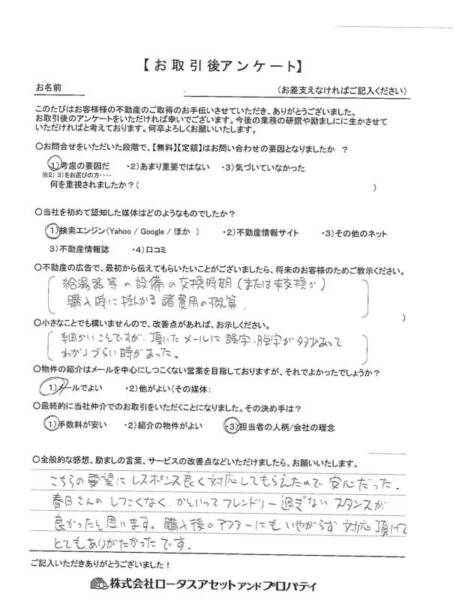 【お取引後アンケート】
お名前　　　　　　　　　　(お差支えなければご記入ください)
このたびはお客様様の不動産のご取得のお手伝いさせていただき、ありがとうございました。
お取引後のアンケートをいただければ幸いでございます。今後の業務の研鑽や励ましにに生かさせて
いただければと考えております。何卒よろしくお願いいたします。
○お問合せをいただいた段階で、【無料】【定額】はお問い合わせの要因となりましたか　?
1)考慮の要因だ　・2)あまり重要ではない　・3)気づいていなかった
※2) 3)をお選びの方・・・・
何を重視されましたか?(　　　　　)
○当社を初めて認知した媒体はどのようなものでしたか?
1)検索エンジン(Yahoo / Google / ほか　)　・2)不動産情報サイト　・3)その他のネット
3)不動産情報誌　・4)口コミ
○不動産の広告で、最初から伝えてもらいたいことがございましたら、将来のお客様のためご教示ください。
給湯器等の設備の交換時期(または未交換か)
購入時に掛かる諸費用の概算
○小さなことでも構いませんので、改善点があれば、お示しください。
細かいことですが、頂いたメールに誤字・脱字が多々あって
わかりづらい時があった。
○物件の紹介はメールを中心にしつこくない営業を目指しておりますが、それでよかったでしょうか?
1)メールでよい　・2)他がよい(その媒体:
○最終的に当社仲介でのお取引をいただくことになりました。その決め手は?
1)手数料が安い　・2)紹介の物件がよい　・3)担当者の人柄/会社の理念
○全般的な感想、励ましの言葉、サービスの改善点などいただけましたら、お願いいたします。
こちらの要望にレスポンス良く対応してもらえたので安心だった。
春日さんのしつこくなく、かといってフレンドリー過ぎないスタンスが
良かったと思います。購入後のアフターにもいやがらず対応頂けて
とてもありがたかったです。
ご記入いただきありがとうございました!
株式会社ロータスアセットアンドプロパティ